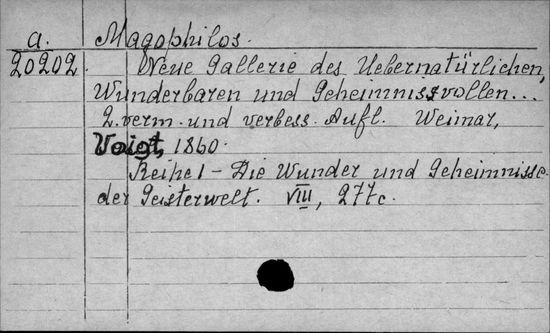 a. Magophilos.
20202. Neue Gallerie des Uebernatürlichen,
Wunderbaren und Geheimnissvollen...
2. verm. und verbess. Aufl. Weimar,
Voigt, 1860.
Reihe 1 - Die Wunder und Geheimnisse
der Geisterwelt. VIII, 277c.